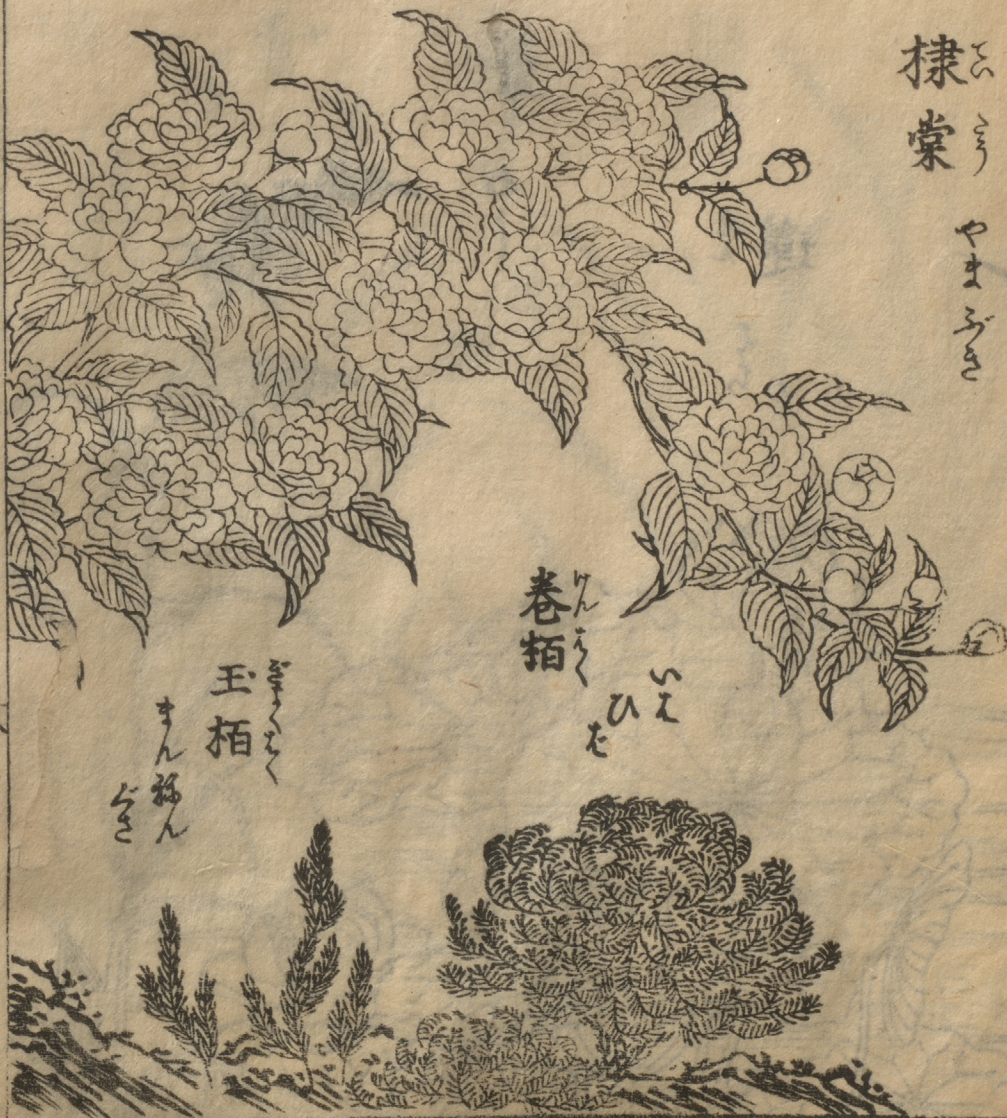 棣棠
てい たう
やまぶき
巻栢
けんはく
いは
ひば
玉栢
ぎよくはく
まん祢ん
ぐさ